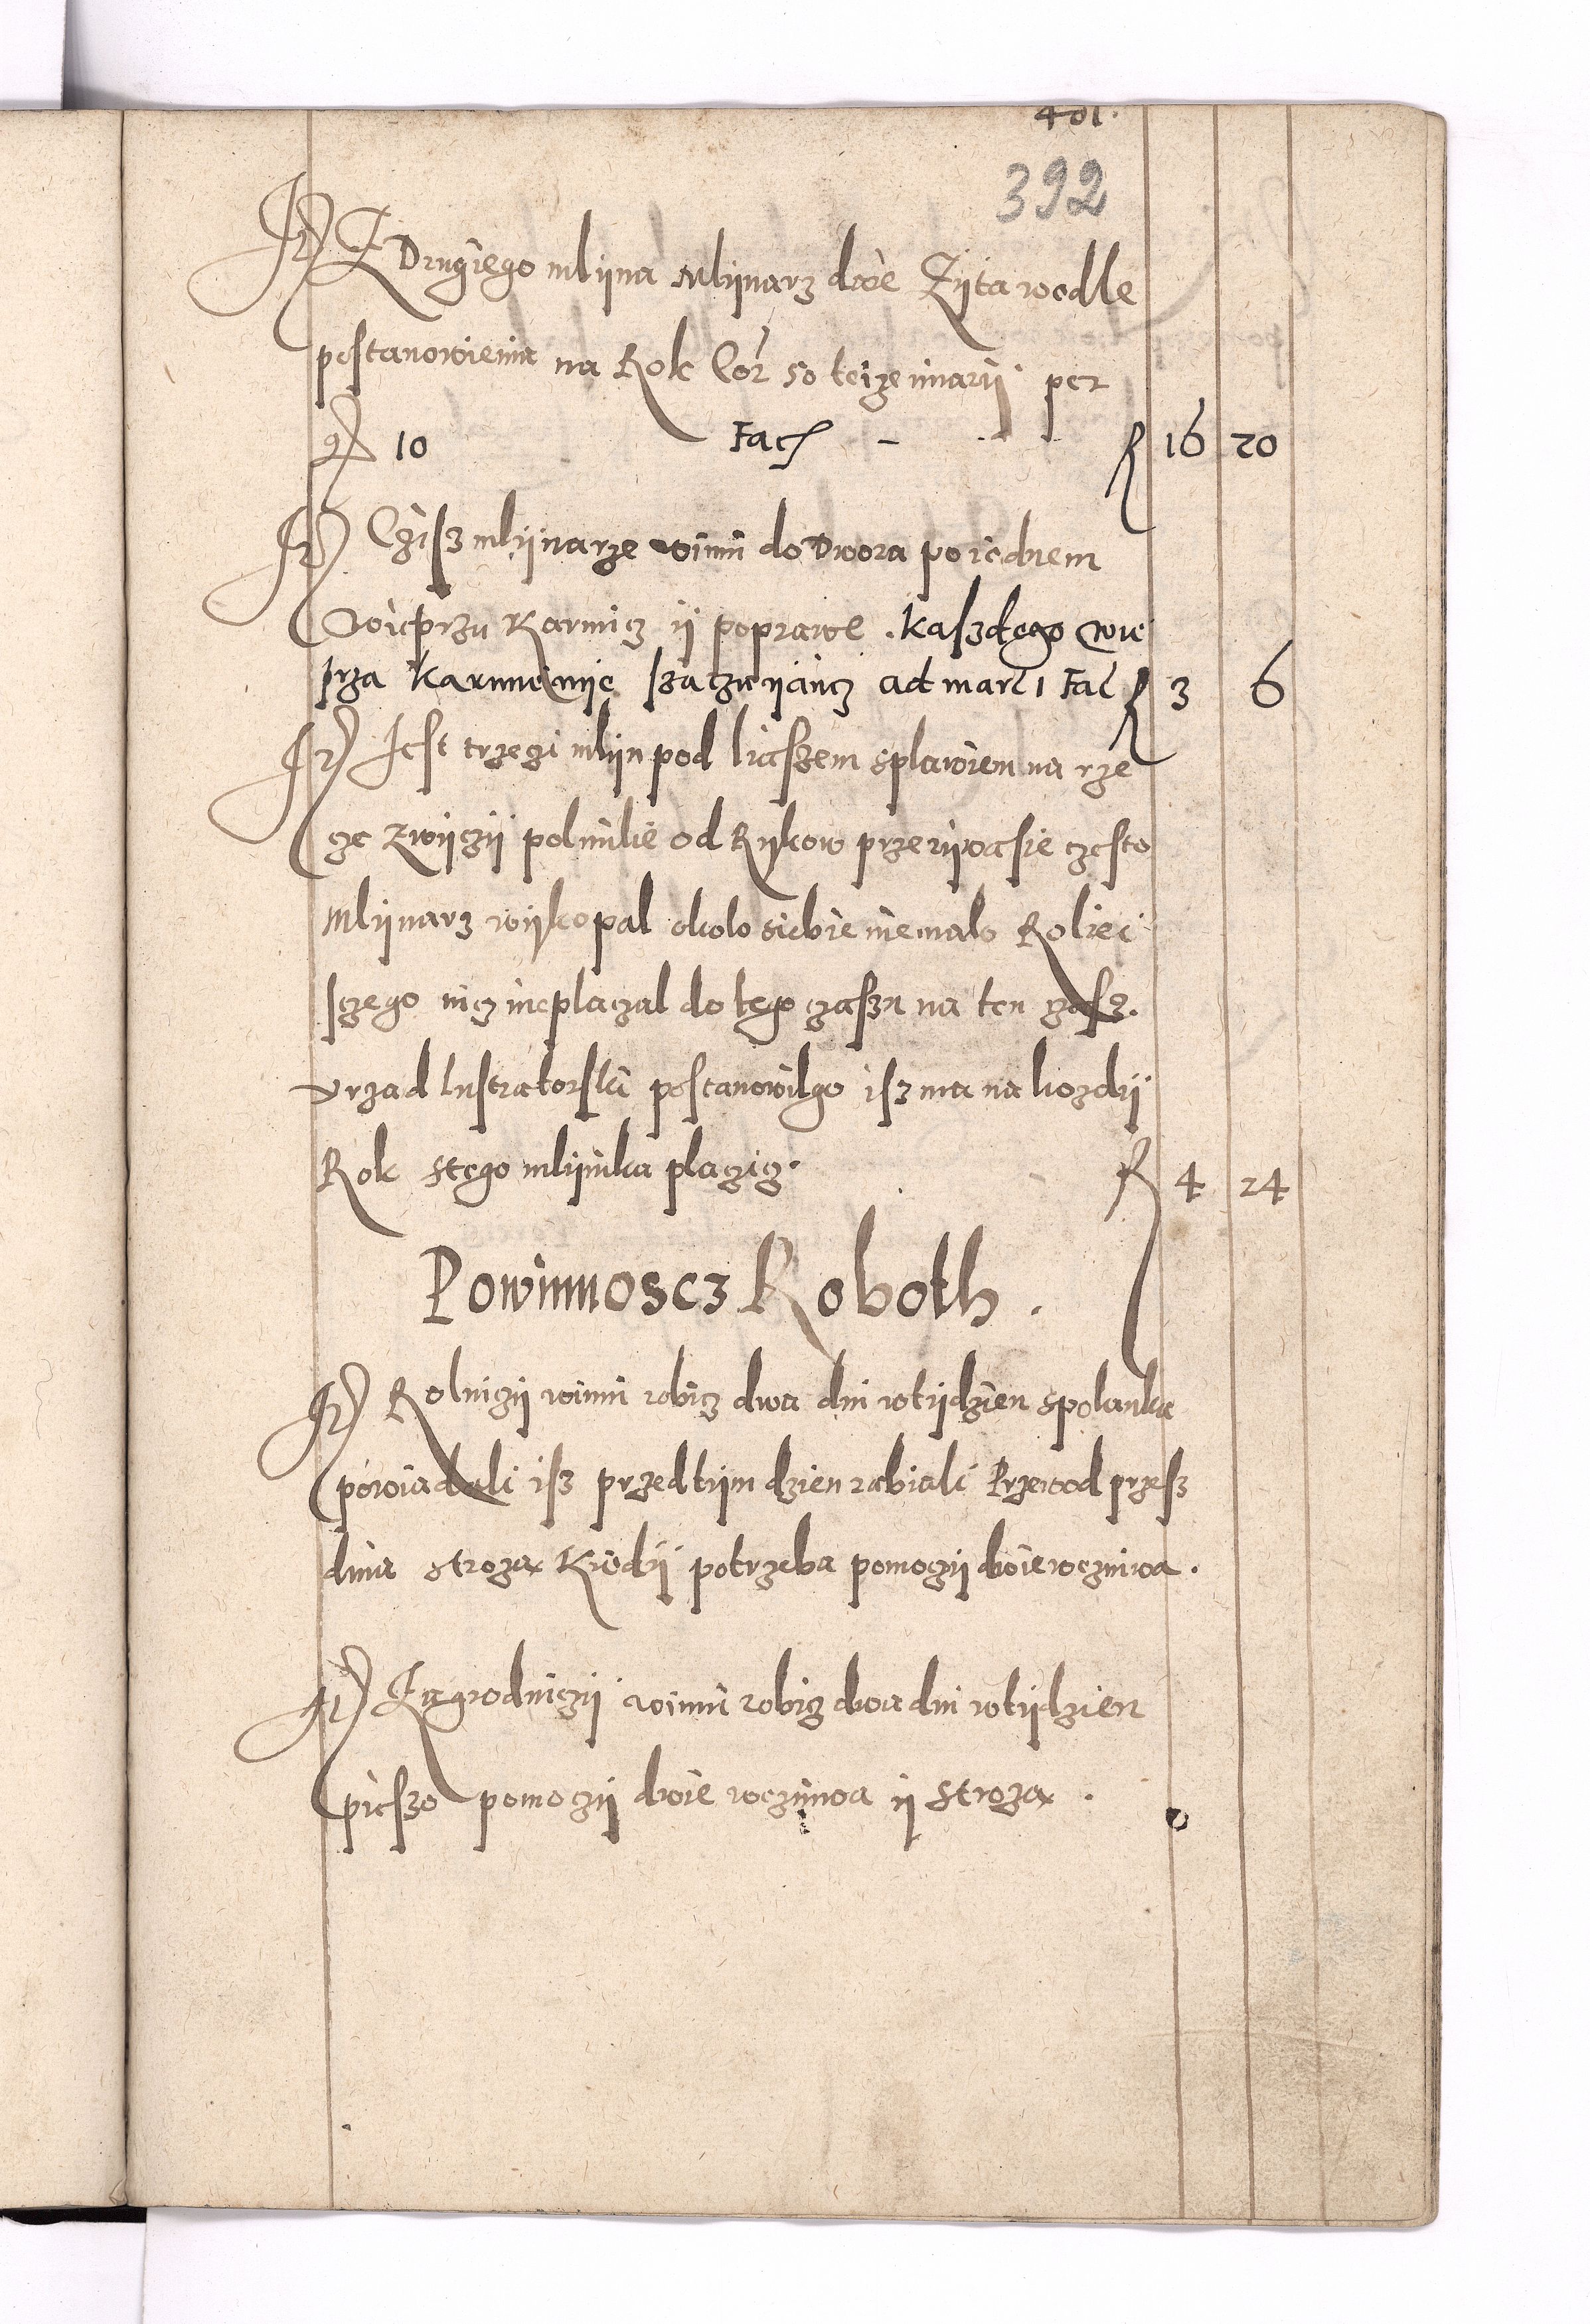 401.
392
Jt Z Drugiego mlijna Mlijnarz dwie Zijta wedle
postanowienia na Rok Cor 50 teize miarij per
gr 10 Facit - R 16 20
Jt Cziisz mlijnarze winni do Dwora po iednem
Wieprzu Karmicz ij poprawie. kaszdego wie
prza karmienie szaczuijancz ad marc 1 Fac R 3 6
Jt Jest trzeczi mlijn pod liaszem splawiem na rze
ce zwijczij polmilie od Rijkow przerijwasie czesto
Mlijnarz wijkopal okolo siebie niemalo Roliei
sczego nicz nieplaczal do tego czaszu na ten czasz.
vrzad lustratorski postanowilgo isz ma na kozdij
Rok stego mlijnika placzicz. R 4 24
Powinnoscz Roboth.
Jt Rolniczij winni robicz dwa dni wtijdzien spolanka
powiadali isz przedtijm dzien rabiali Przewod przesz
dnia stroza Kiedij potrzeba pomoczij dwie wczniwa.
Jt Zagrodniczij winni robicz dwa dni wtijdzien
pieszo pomoczij dwie wczniwa ij stroza.